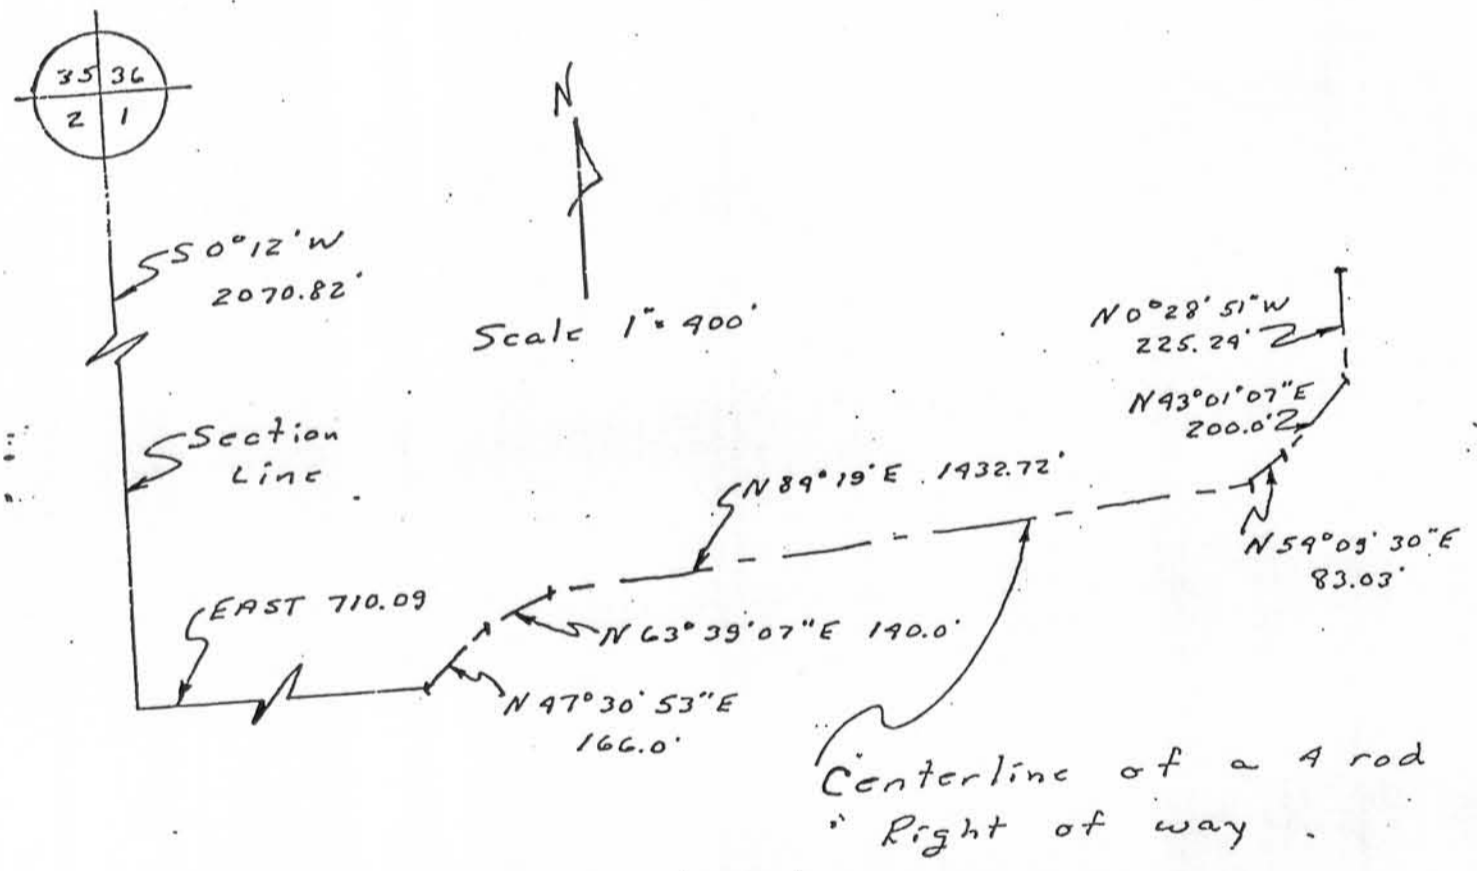 35 36
2 1
N
S 0°12' W
2070.82'
Scale 1"= 400'
N 0°28'51" W
225.24'
N 43°01'07" E
200.0'
Section
Line
N 84°19' E 1432.72'
N 54°09'30" E
83.03'
EAST 710.09
N 63°39'07" E 140.0'
N 47°30'53" E
166.0'
Centerline of a 4 rod
Right of way.